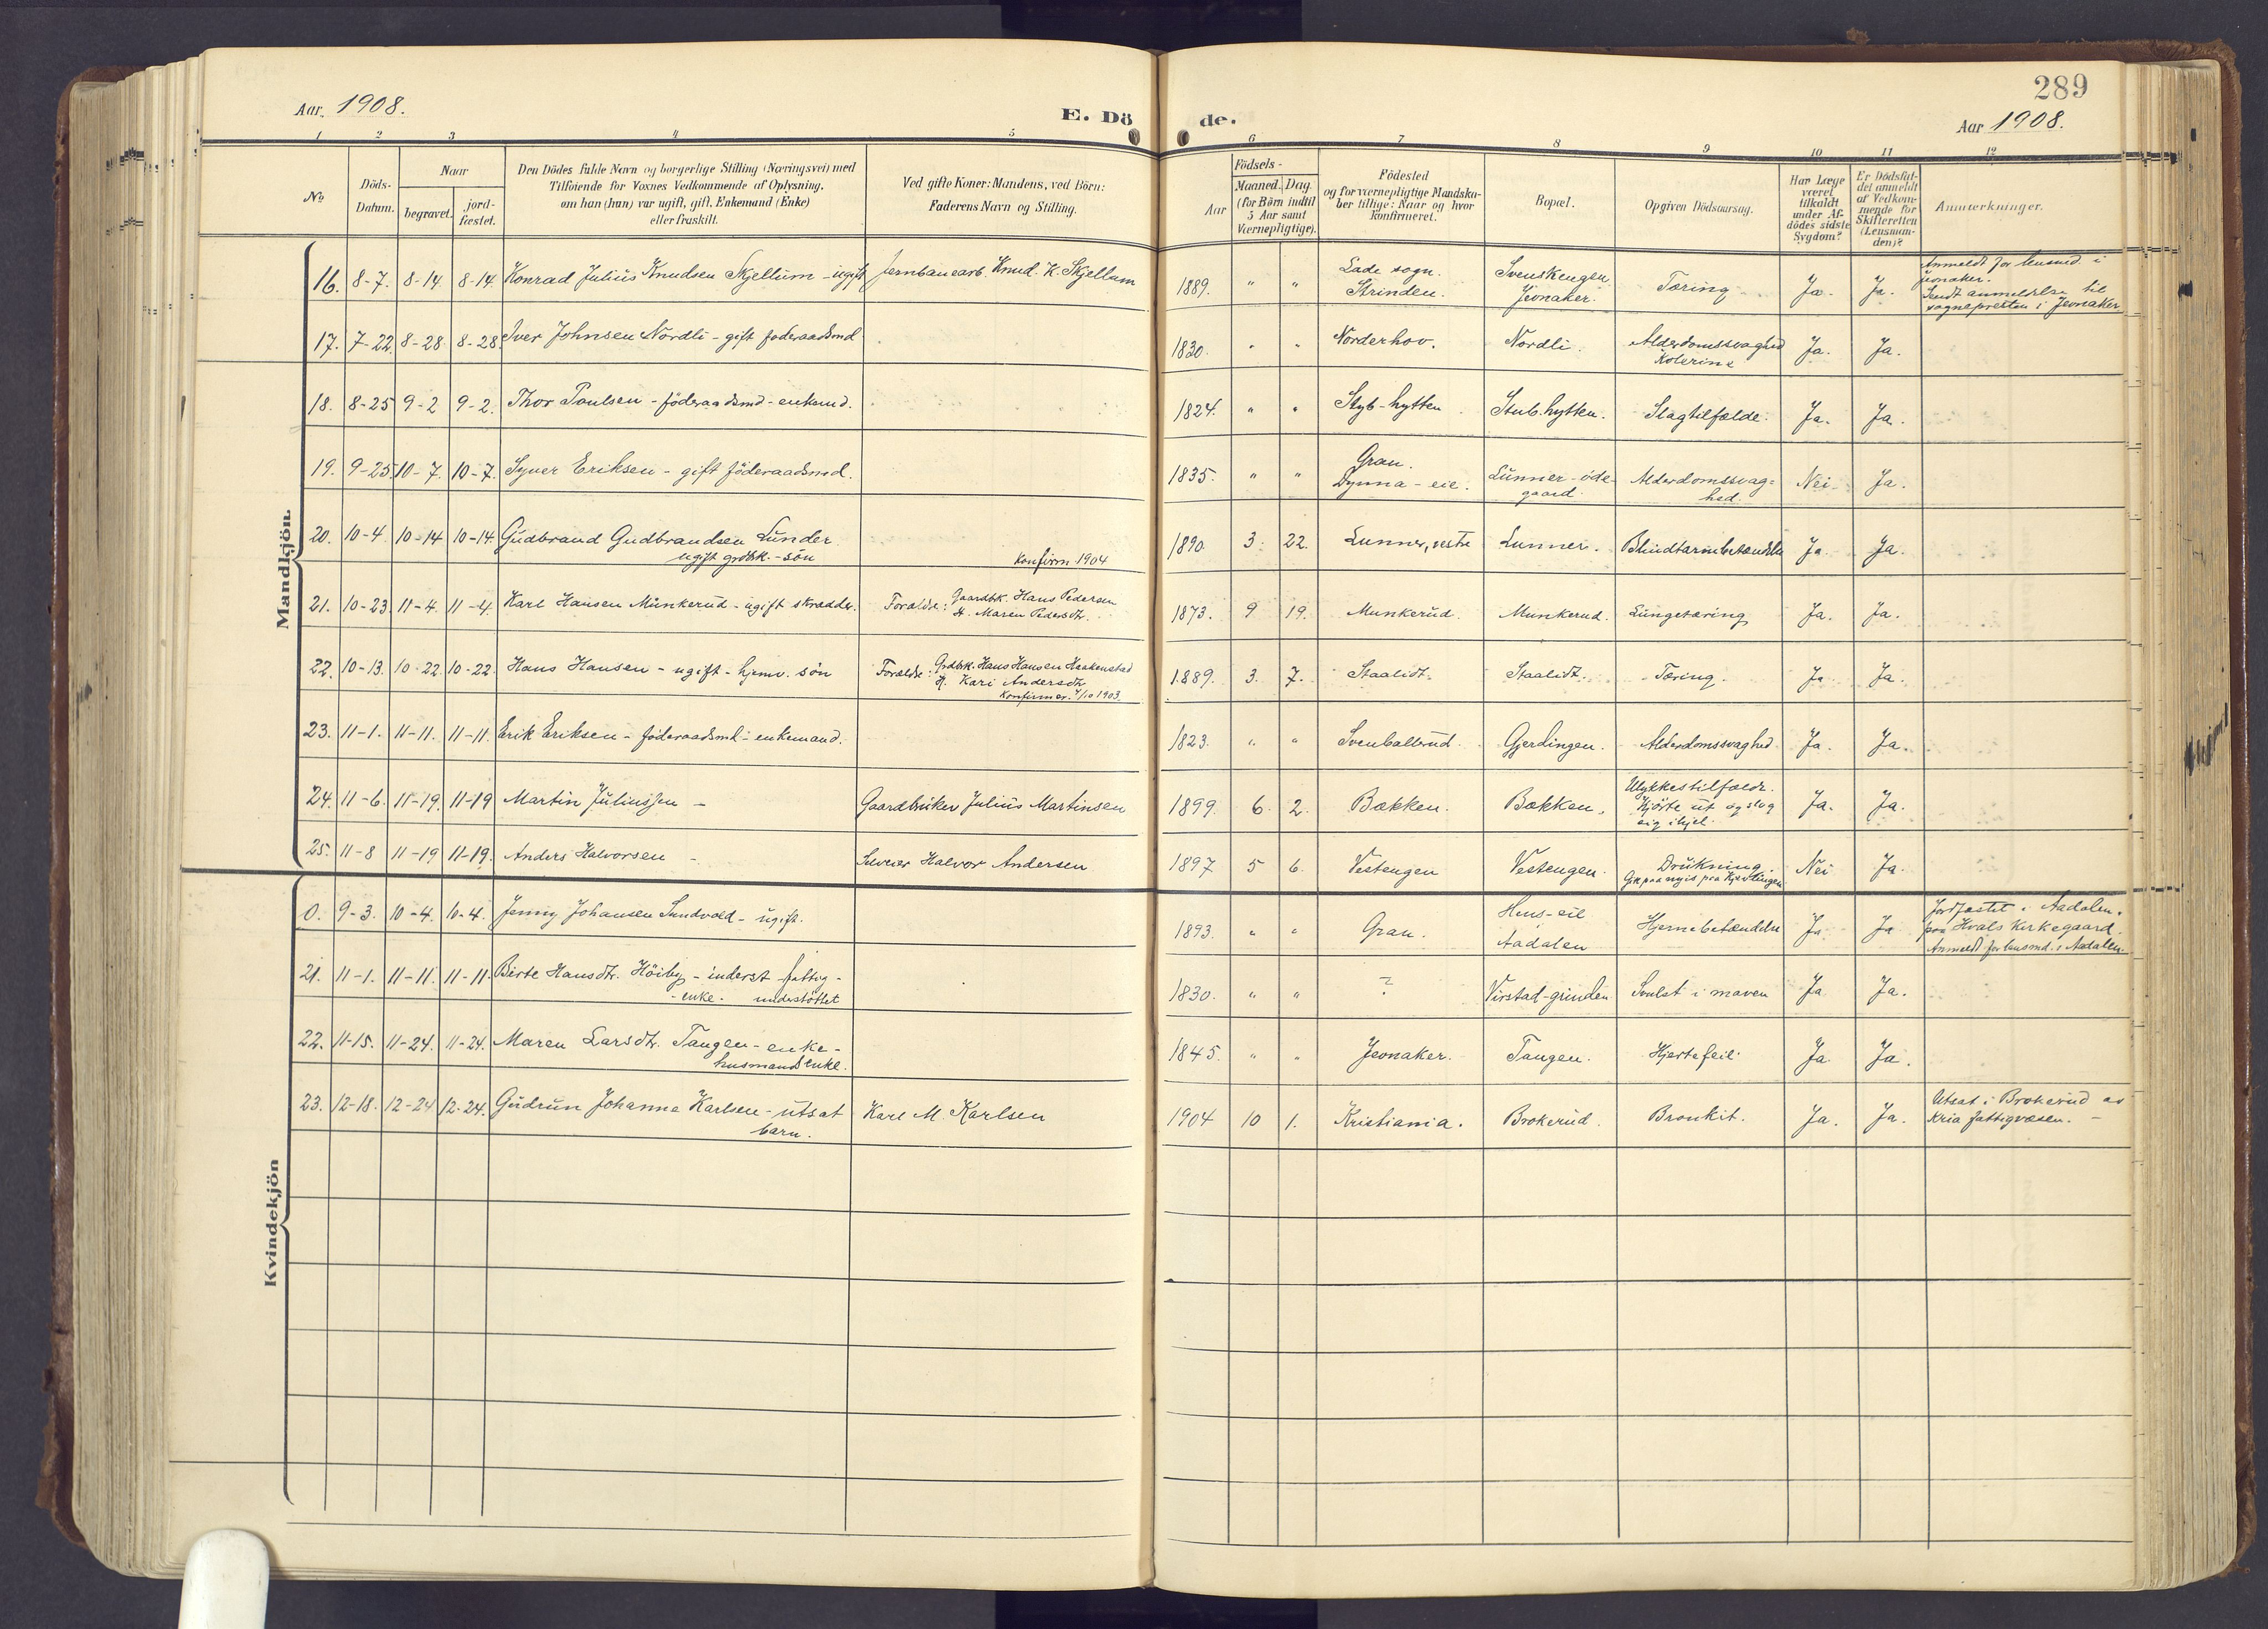 289
Aar 1908.
E. Dö
de.
Aar 1908.
1 2 3 4 5 6 7 8 9 10 11 12
No
Döds-
Datum.
Naar
begravet.
jord-
fæstet.
Den Dödes fulde Navn og borgerlige Stilling (Næringsvei) med
Tilföiende for Voxnes Vedkommende af Oplysning,
om han (hun) var ugift, gift, Enkemand (Enke)
eller fraskilt.
Ved gifte Koner: Mandens, ved Börn:
Faderens Navn og Stilling.
Födsels-
Aar
Maaned. Dag.
(for Börn indtil
5 Aar samt
Værnepligtige).
Födested
og for værnepligtige Mandska-
ber tillige: Naar og hvor
konfirmeret.
Bopæl.
Opgiven Dödsaarsag.
Har Læge
været
tilkaldt
under Af-
dödes sidste
Sygdom?
Er Dödsfal-
det anmeldt
af Vedkom-
mende for
Skifteretten
(Lensman-
den)?
Anmærkninger.
Mandkjön.
16. 8-7. 8-14 8-14. Konrad Julius Knudsen Skjellum - ugift Jernbanearb. Knud K. Skjellum 1889. " " Lade sogn. Strinden. Svenskengen Jevnaker. Tæring Ja. Ja. Anmeldt for lensmd. i
Jevnaker.
Sendt anmeldelse til
sognepresten i Jevnaker
17. 7-22. 8-28 8-28 Iver Johnsen Nordli - gift föderaadsmd 1830. " " Norderhov. Nordli. Alderdomssvaghed
Kolerine Ja. Ja.
18. 8-25 9-2 9-2. Thor Paulsen - föderaadsmd - enkemd. 1824. " " Styb-hytten Stub.hytten. Slagtilfælde. Ja. Ja.
19. 9-25 10-7. 10-7. Syver Eriksen - gift föderaadsmd. 1835. " " Gran.
Dynna-eie. Lunner-öde-
gaard. Alderdomssvag=
hed. Nei Ja.
20. 10-4 10-14 10-14. Gudbrand Gudbrandsen Lunder
ugift grdbk.-sön Konfirm 1904 1890 3. 22. Lunner, vestre Lunner. Blindtarmbetændelse Ja Ja.
21. 10-23 11-4. 11-4. Karl Hansen Munkerud - ugift skrædder. Forældre: Gaardbk. Hans Pedersen
H. Maren Pedersdtr. 1873. 9 19. Munkerud. Munkerud. Lungetæring Ja. Ja.
22. 10-13. 10-22 10-22. Hans Hansen - ugift - hjemv. sön Forældre: Grdbk. Hans Hansen Haakenstad
H. Kari Andersdtr.
Konfirmer. 4/10 1903. 1889. 3. 7. Staalidt. Staalidt. Tæring. Ja Ja.
23. 11-1. 11-11. 11-11. Erik Eriksen - föderaadsmd - enkemand. 1823. " " Svenballerud. Gjerdingen. Alderdomssvaghed. Ja. Ja.
24. 11-6. 11-19. 11-19 Martin Juliussen - Gaardbruker Julius Martinsen 1899. 6. 2. Bækken. Bækken. Ulykkestilfælde.
Kjörte ut og slog
sig ihjel. Ja. Ja.
25. 11-8 11-19 11-19. Anders Halvorsen - Halvor Andersen 1897 5 6. Vestengen Vestengen. Drukning
Gik paa nyis paa Gjerdingen Nei Ja.
Kvindekjön
0. 9-3. 10-4. 10-4. Jenny Johansen Sundvold - ugift. 1893. " " Gran. Hens-eie
Aadalen Hjernebetændelse Ja Ja Jordfæstet i Aadalen.
paa Hvals Kirkegaard.
Anmeldt for lensmd. i Aadalen
21. 11-1. 11-11. 11-11. Birte Hansdtr. Höiby - inderst fattig-
- enke. understöttet 1830. " " ? Virstad-grinden Svulst i maven Ja Ja.
22. 11-15. 11-24. 11-24. Maren Larsdtr. Tangen - enke -
husmandsenke. 1845. " " Jevnaker. Tangen. Hjertefeil. Ja. Ja.
23. 12-18. 12-24 12-24. Gudrun Johanna Karlsen - utsat
barn. Karl M. Karlsen 1904 10 1. Kristiania. Brokerud. Bronkit. Ja. Ja. Utsat i Brokerud av
Kria fattigvæsen. -